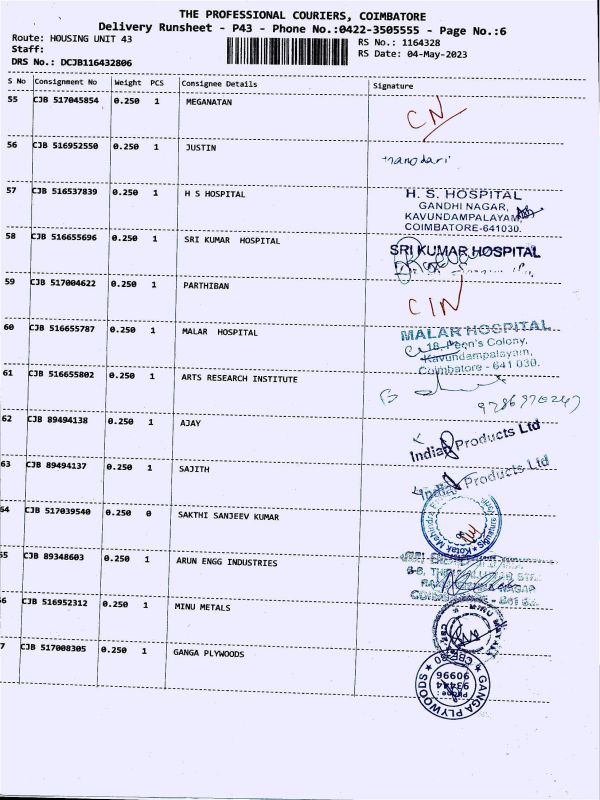 THE PROFESSIONAL COURIERS, COIMBATORE
Delivery Runsheet - P43 - Phone No.:0422-3505555 - Page No.:6
Route: HOUSING UNIT 43 RS No.: 1164328
Staff: RS Date: 04-May-2023
DRS No.: DCJB116432806
S No Consignment No Weight PCS Consignee Details Signature
55 CJB 517045854 0.250 1 MEGANATAN CN
56 CJB 516952550 0.250 1 JUSTIN
57 CJB 516537839 0.250 1 H S HOSPITAL H. S. HOSPITAL
GANDHI NAGAR,
KAVUNDAMPALAYAM,
COIMBATORE-641030.
58 CJB 516655696 0.250 1 SRI KUMAR HOSPITAL SRI KUMAR HOSPITAL
59 CJB 517004622 0.250 1 PARTHIBAN CIN
60 CJB 516655787 0.250 1 MALAR HOSPITAL MALAR HOSPITAL
18, Colony,
Kavundampalayam,
Coimbatore - 641 030.
61 CJB 516655802 0.250 1 ARTS RESEARCH INSTITUTE
62 CJB 89494138 0.250 1 AJAY Products Ltd
63 CJB 89494137 0.250 1 SAJITH Products Ltd
64 CJB 517039540 0.250 0 SAKTHI SANJEEV KUMAR Kotak Mahindra
55 CJB 89348603 0.250 1 ARUN ENGG INDUSTRIES
6 CJB 516952312 0.250 1 MINU METALS MINU
7 CJB 517008305 0.250 1 GANGA PLYWOODS GANGA PLYWOODS
Phone :
93444
90996